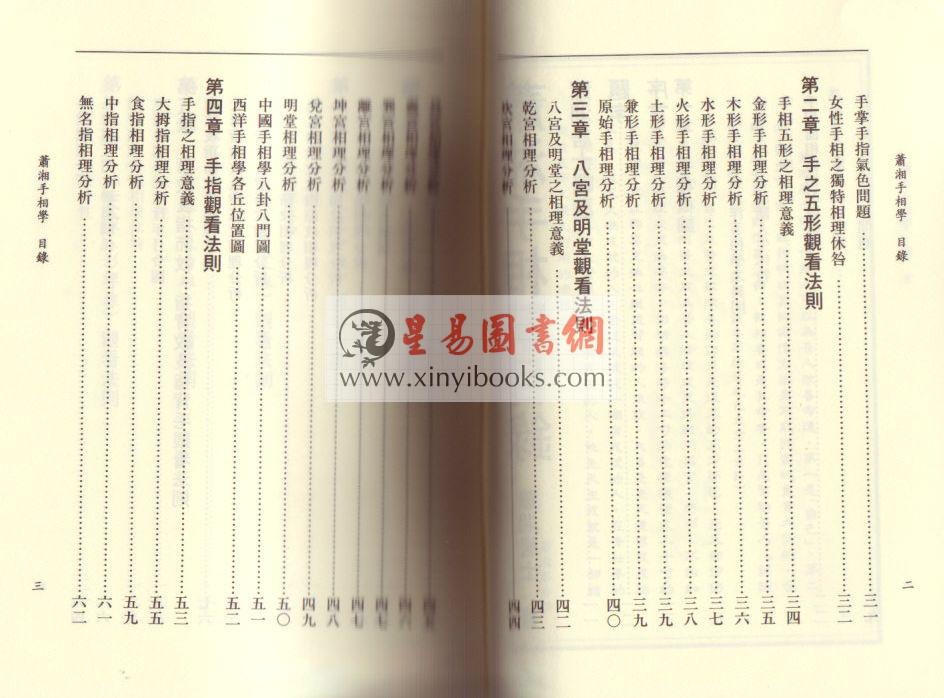 蕭湘手相學 目錄
二
手掌手指氣色問題……三一
女性手相之獨特相理休咎……三二
第二章 手之五形觀看法則
手相五形之相理意義……三四
金形手相理分析……三五
木形手相理分析……三六
水形手相理分析……三七
火形手相理分析……三八
土形手相理分析……三九
兼形手相理分析……三九
原始手相理分析……四〇
第三章 八宮及明堂觀看法則
八宮及明堂之相理意義……四二
乾宮相理分析……四三
坎宮相理分析……四四
離宮相理分析……四七
坤宮相理分析……四八
兌宮相理分析……四九
明堂相理分析……五〇
中國手相學八卦八門圖……五一
西洋手相學各丘位置圖……五二
第四章 手指觀看法則
手指之相理意義……五三
大拇指相理分析……五五
食指相理分析……五九
中指相理分析……六一
無名指相理分析……六二
蕭湘手相學 目錄
三
星易圖書網
www.xinyibooks.com